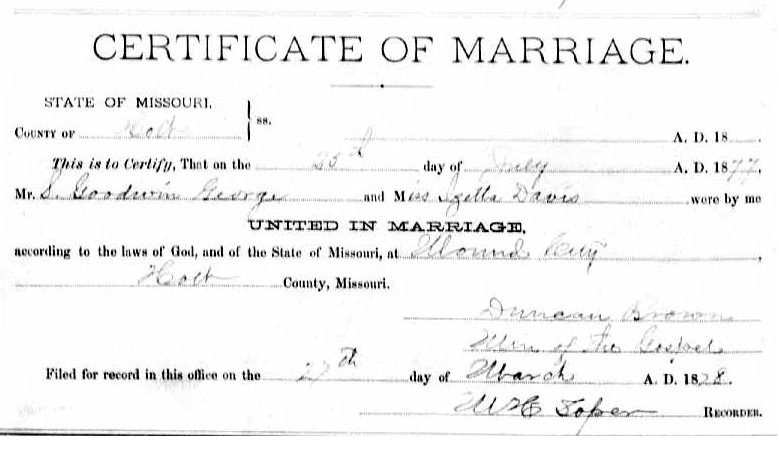 CERTIFICATE OF MARRIAGE.
STATE OF MISSOURI,
COUNTY OF Holt ss.
A. D. 18
This is to Certify, That on the 25th day of July A. D. 1877,
Mr. S. Goodwin George and Miss Izella Davis were by me
UNITED IN MARRIAGE,
according to the laws of God, and of the State of Missouri, at Mound City,
Holt County, Missouri.
Duncan Brown
Min of the Gospel
Filed for record in this office on the 27th day of March A. D. 1878.
RECORDER.